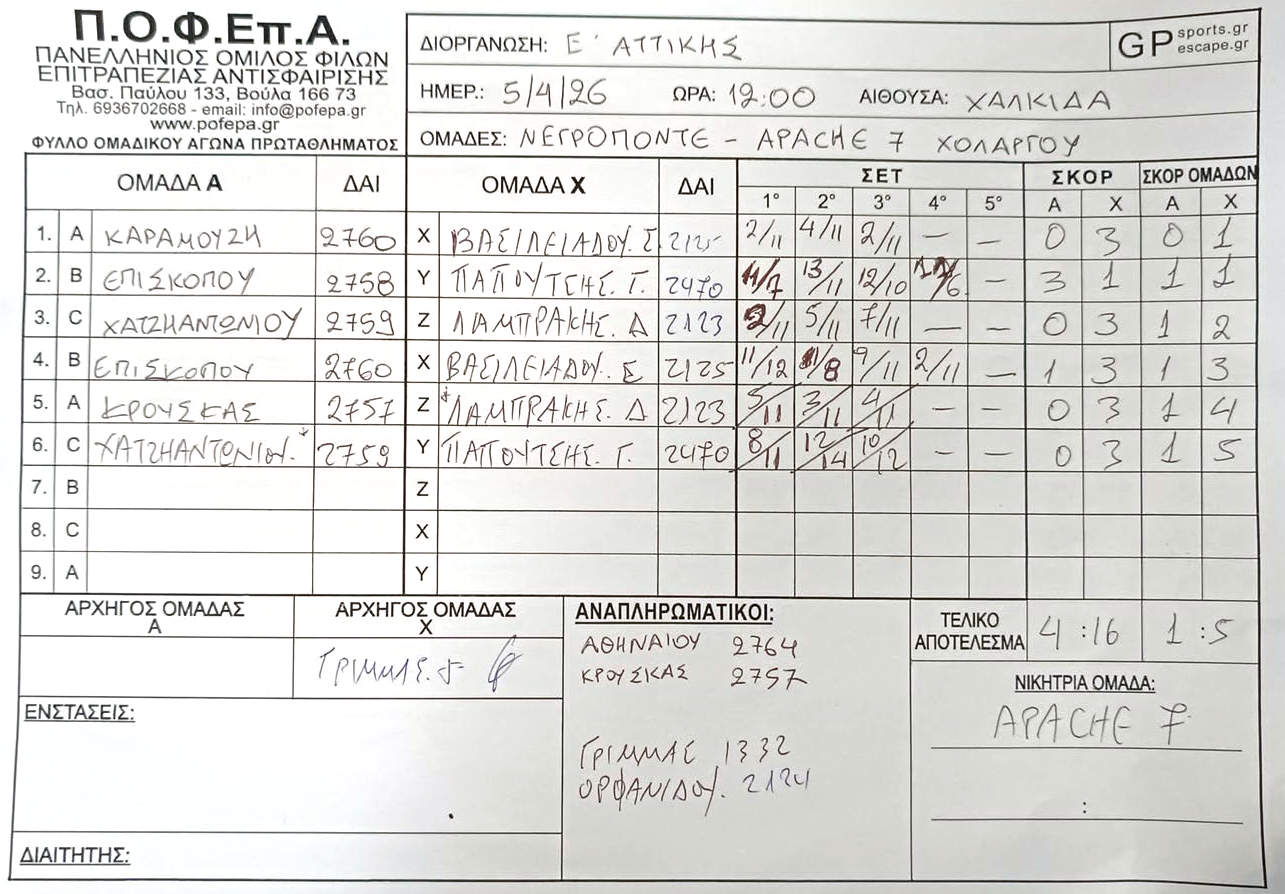 Π.Ο.Φ.Επ.Α.
ΠΑΝΕΛΛΗΝΙΟΣ ΟΜΙΛΟΣ ΦΙΛΩΝ
ΕΠΙΤΡΑΠΕΖΙΑΣ ΑΝΤΙΣΦΑΙΡΙΣΗΣ
Βασ. Παύλου 133, Βούλα 166 73
Τηλ. 6936702668 - email: info@pofepa.gr
www.pofepa.gr
ΦΥΛΛΟ ΟΜΑΔΙΚΟΥ ΑΓΩΝΑ ΠΡΩΤΑΘΛΗΜΑΤΟΣ
ΔΙΟΡΓΑΝΩΣΗ: Ε΄ ΑΤΤΙΚΗΣ
GP sports.gr
escape.gr
ΗΜΕΡ.: 5/4/26 ΩΡΑ: 12:00 ΑΙΘΟΥΣΑ: ΧΑΛΚΙΔΑ
ΟΜΑΔΕΣ: ΝΕΓΡΟΠΟΝΤΕ - APACHE 7 ΧΟΛΑΡΓΟΥ
ΟΜΑΔΑ Α ΔΑΙ ΟΜΑΔΑ Χ ΔΑΙ ΣΕΤ ΣΚΟΡ ΣΚΟΡ ΟΜΑΔΩΝ
1° 2° 3° 4° 5° Α Χ Α Χ
1. A ΚΑΡΑΜΟΥΖΗ 2760 X ΒΑΣΙΛΕΙΑΔΟΥ. Σ 2125 2/11 4/11 2/11 — — 0 3 0 1
2. B ΕΠΙΣΚΟΠΟΥ 2758 Y ΠΑΠΟΥΤΣΗΣ. Γ. 2470 11/7 13/11 12/10 — 3 1 1 1
3. C ΧΑΤΖΗΑΝΤΩΝΙΟΥ 2759 Z ΛΑΜΠΡΑΚΗΣ. Δ 2123 2/11 5/11 7/11 — — 0 3 1 2
4. B ΕΠΙΣΚΟΠΟΥ 2760 X ΒΑΣΙΛΕΙΑΔΟΥ. Σ 2125 11/12 11/8 9/11 2/11 — 1 3 1 3
5. A ΚΡΟΥΣΚΑΣ 2757 Z ΛΑΜΠΡΑΚΗΣ. Δ 2123 5/11 3/11 4/11 — — 0 3 1 4
6. C ΧΑΤΖΗΑΝΤΩΝΙΟΥ. 2759 Y ΠΑΠΟΥΤΣΗΣ. Γ. 2470 8/11 12/14 10/12 — — 0 3 1 5
7. B Z
8. C X
9. A Y
ΑΡΧΗΓΟΣ ΟΜΑΔΑΣ Α
ΑΡΧΗΓΟΣ ΟΜΑΔΑΣ Χ
ΓΡΙΜΜΑΣ.
ΑΝΑΠΛΗΡΩΜΑΤΙΚΟΙ:
ΑΘΗΝΑΙΟΥ 2764
ΚΡΟΥΣΚΑΣ 2757
ΓΡΙΜΜΑΣ 1332
ΟΡΦΑΝΙΔΟΥ. 2124
ΤΕΛΙΚΟ ΑΠΟΤΕΛΕΣΜΑ 4 :16 1 :5
ΝΙΚΗΤΡΙΑ ΟΜΑΔΑ:
APACHE 7
:
ΕΝΣΤΑΣΕΙΣ:
ΔΙΑΙΤΗΤΗΣ: